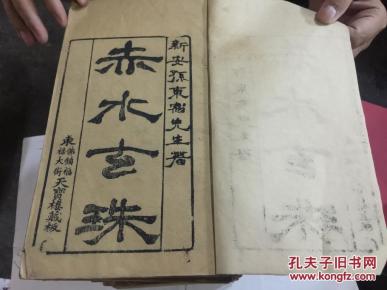 新安孫東宿先生著
赤水玄珠
東
佛鎮福
福大街
天寶樓藏板
孔夫子旧书网